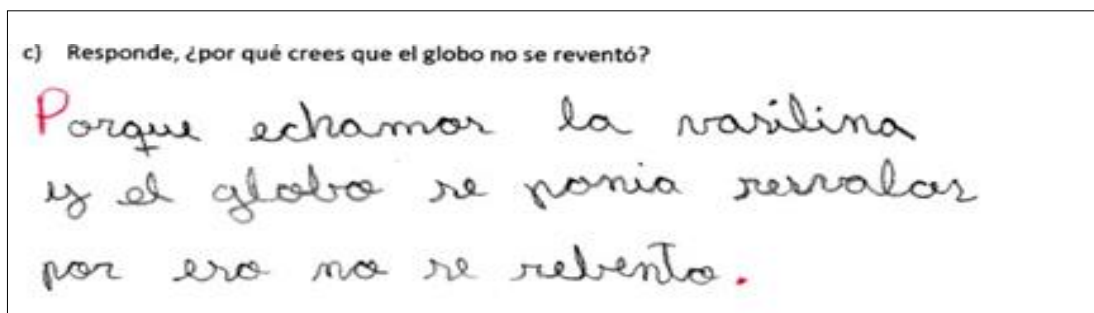 c) Responde, ¿por qué crees que el globo no se reventó?
Porque echamos la vasilina
y el globo se ponia resvalos
por eso no se rebento.